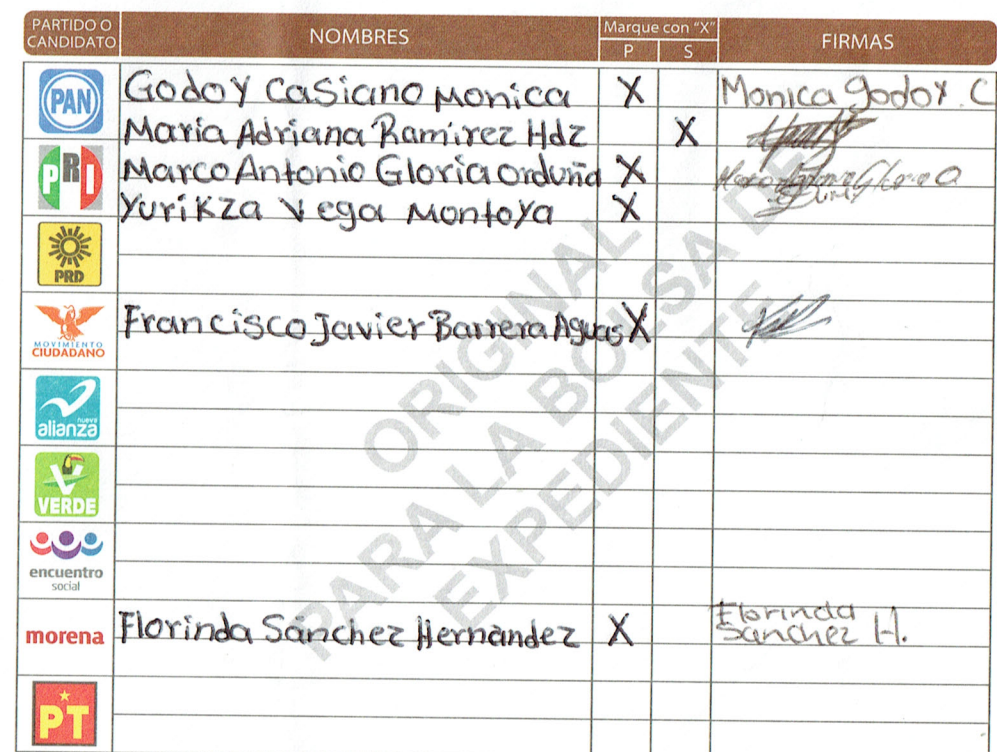 PARTIDO O CANDIDATO NOMBRES Marque con "X" FIRMAS
P S
PAN Godoy Casiano Monica X Monica Godoy. C
Maria Adriana Ramirez Hdz X
PRI Marco Antonio Gloria orduña X Marco Antonio Gloria O
Yurikza Vega Montoya X
PRD
MOVIMIENTO CIUDADANO Francisco Javier Barrera Aguas X
nueva alianza
VERDE
encuentro social
morena Florinda Sánchez Hernández X Florinda Sanchez H.
PT
ORIGINAL
PARA LA BOLSA DE
EXPEDIENTE